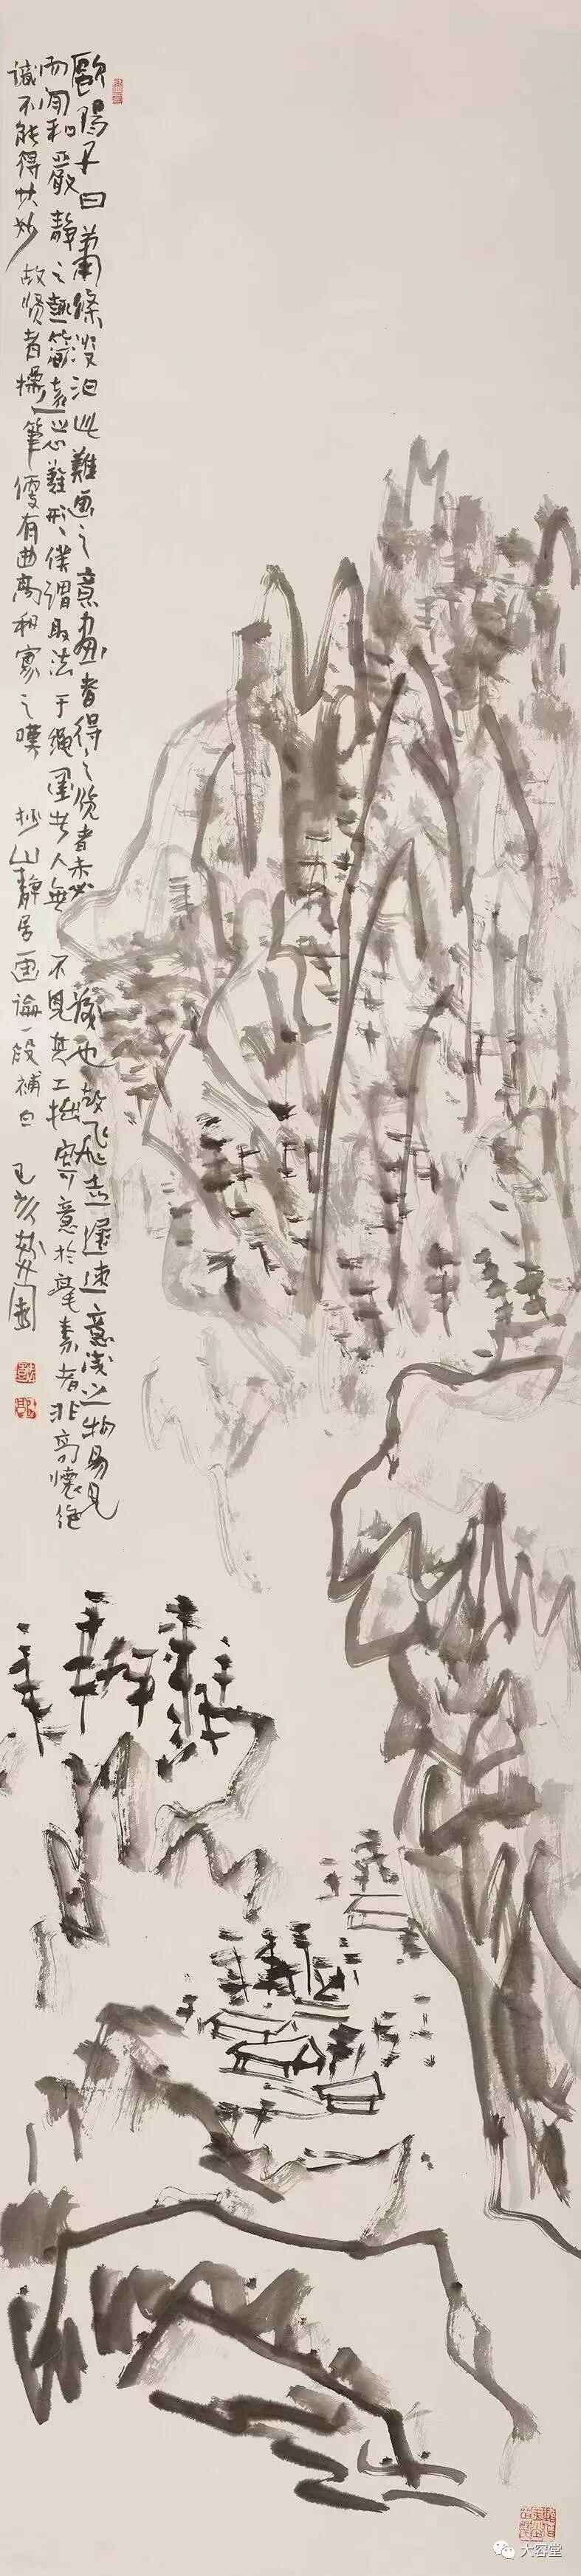 歐陽子曰蕭條淡泊此難画之意画者得之覽者未必識也故飛走遲速意淺之物易見
而閒和嚴靜之趣簡遠之心難形僕謂取法于繩墨者人無不見其工拙寄意於毫素者非高懷絕
識不能得其妙故賢者操筆便有曲高和寡之嘆 抄山靜居画論一段補白 己亥
大容堂